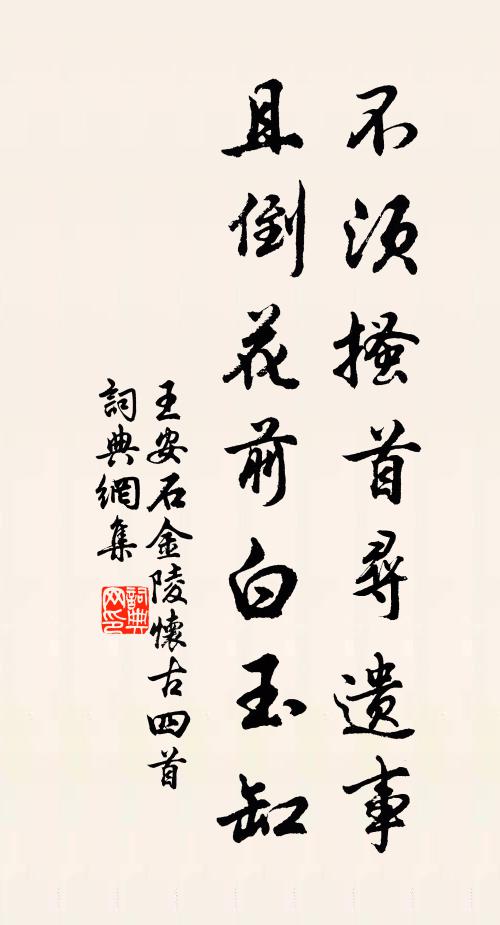 不須搔首尋遺事
且倒花前白玉缸
王安石金陵懷古四首
詞典網集
詞典网印